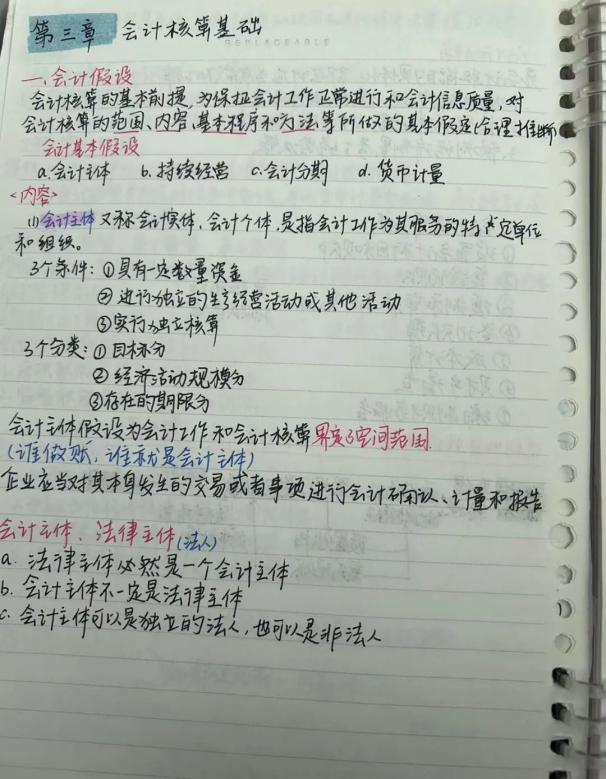 第三章 会计核算基础
REPLACEABLE
一、会计假设
会计核算的基本前提,为保证会计工作正常进行和会计信息质量,对
会计核算的范围、内容、基本程序和方法等所做的基本假定(合理推断
会计基本假设
a.会计主体 b.持续经营 c.会计分期 d.货币计量
<内容>
(1)会计主体 又称会计实体,会计个体,是指会计工作为其服务的特定单位
和组织。
3个条件:①具有一定数量资金
②进行独立的生产经营活动或其他活动
③实行独立核算
3个分类:①目标分
②经济活动规模分
③存在的期限分
会计主体假设为会计工作和会计核算界定了空间范围.
(谁做账,谁就是会计主体)
企业应当对其本身发生的交易或者事项进行会计确认、计量和报告
会计主体、法律主体(法人)
a.法律主体必然是一个会计主体
b.会计主体不一定是法律主体
c.会计主体可以是独立的法人,也可以是非法人